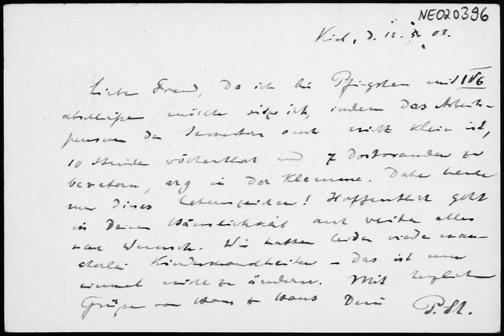 NE020396
Kiel, d. 12. 5. 03.
Liebe Freund, Da ich bis Pfingsten mit IV6
abschließen möchte sitze ich, indem das Arbeits
pensum des Semesters auch nicht klein ist,
10 Stunde wöchentlich und 7 Doctoranden zu
beraten, arg in der Klemme. Daher heute
nur dieses Lebenszeichen! Hoffentlich geht
in Deiner Häuslichkeit auch weiter alles
nach Wunsch. Wir hatten leider wieder man
cherlei Kinderkrankheiten – das ist nun
einmal nicht zu ändern. Mit herzlichen
Grüßen von Haus zu Haus Dein
P. St.